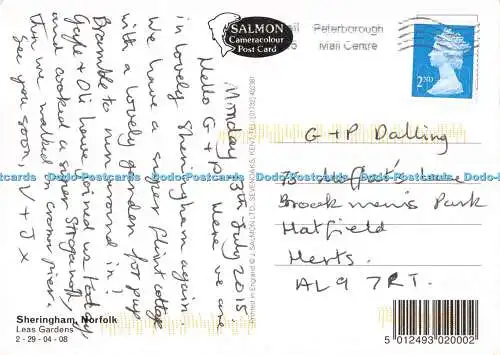 SALMON
Cameracolour
Post Card
Peterborough
Mail Centre
2ND
Monday 13th July 2015.
Hello G + P. Here we are
in lovely Sheringham again
We have a super flint cottage
with a lovely garden for pup
Bramble to run around in!
Gayle + Oli have joined us today
and cooked a super Stroganoff,
then we walked on Cromer Pier.
See you soon, V + J x
© J. SALMON LTD., SEVENOAKS, ENGLAND. (01732) 452381
Printed in England
G + P Dalling
73 Moffats Lane
Brookmans Park
Hatfield
Herts.
AL9 7RT.
Dodo-Postcards Dodo-Postcards Dodo-Postcards Dodo-Postcards Dodo-Postcards
Sheringham, Norfolk
Leas Gardens
2 - 29 - 04 - 08
5 012493 020002